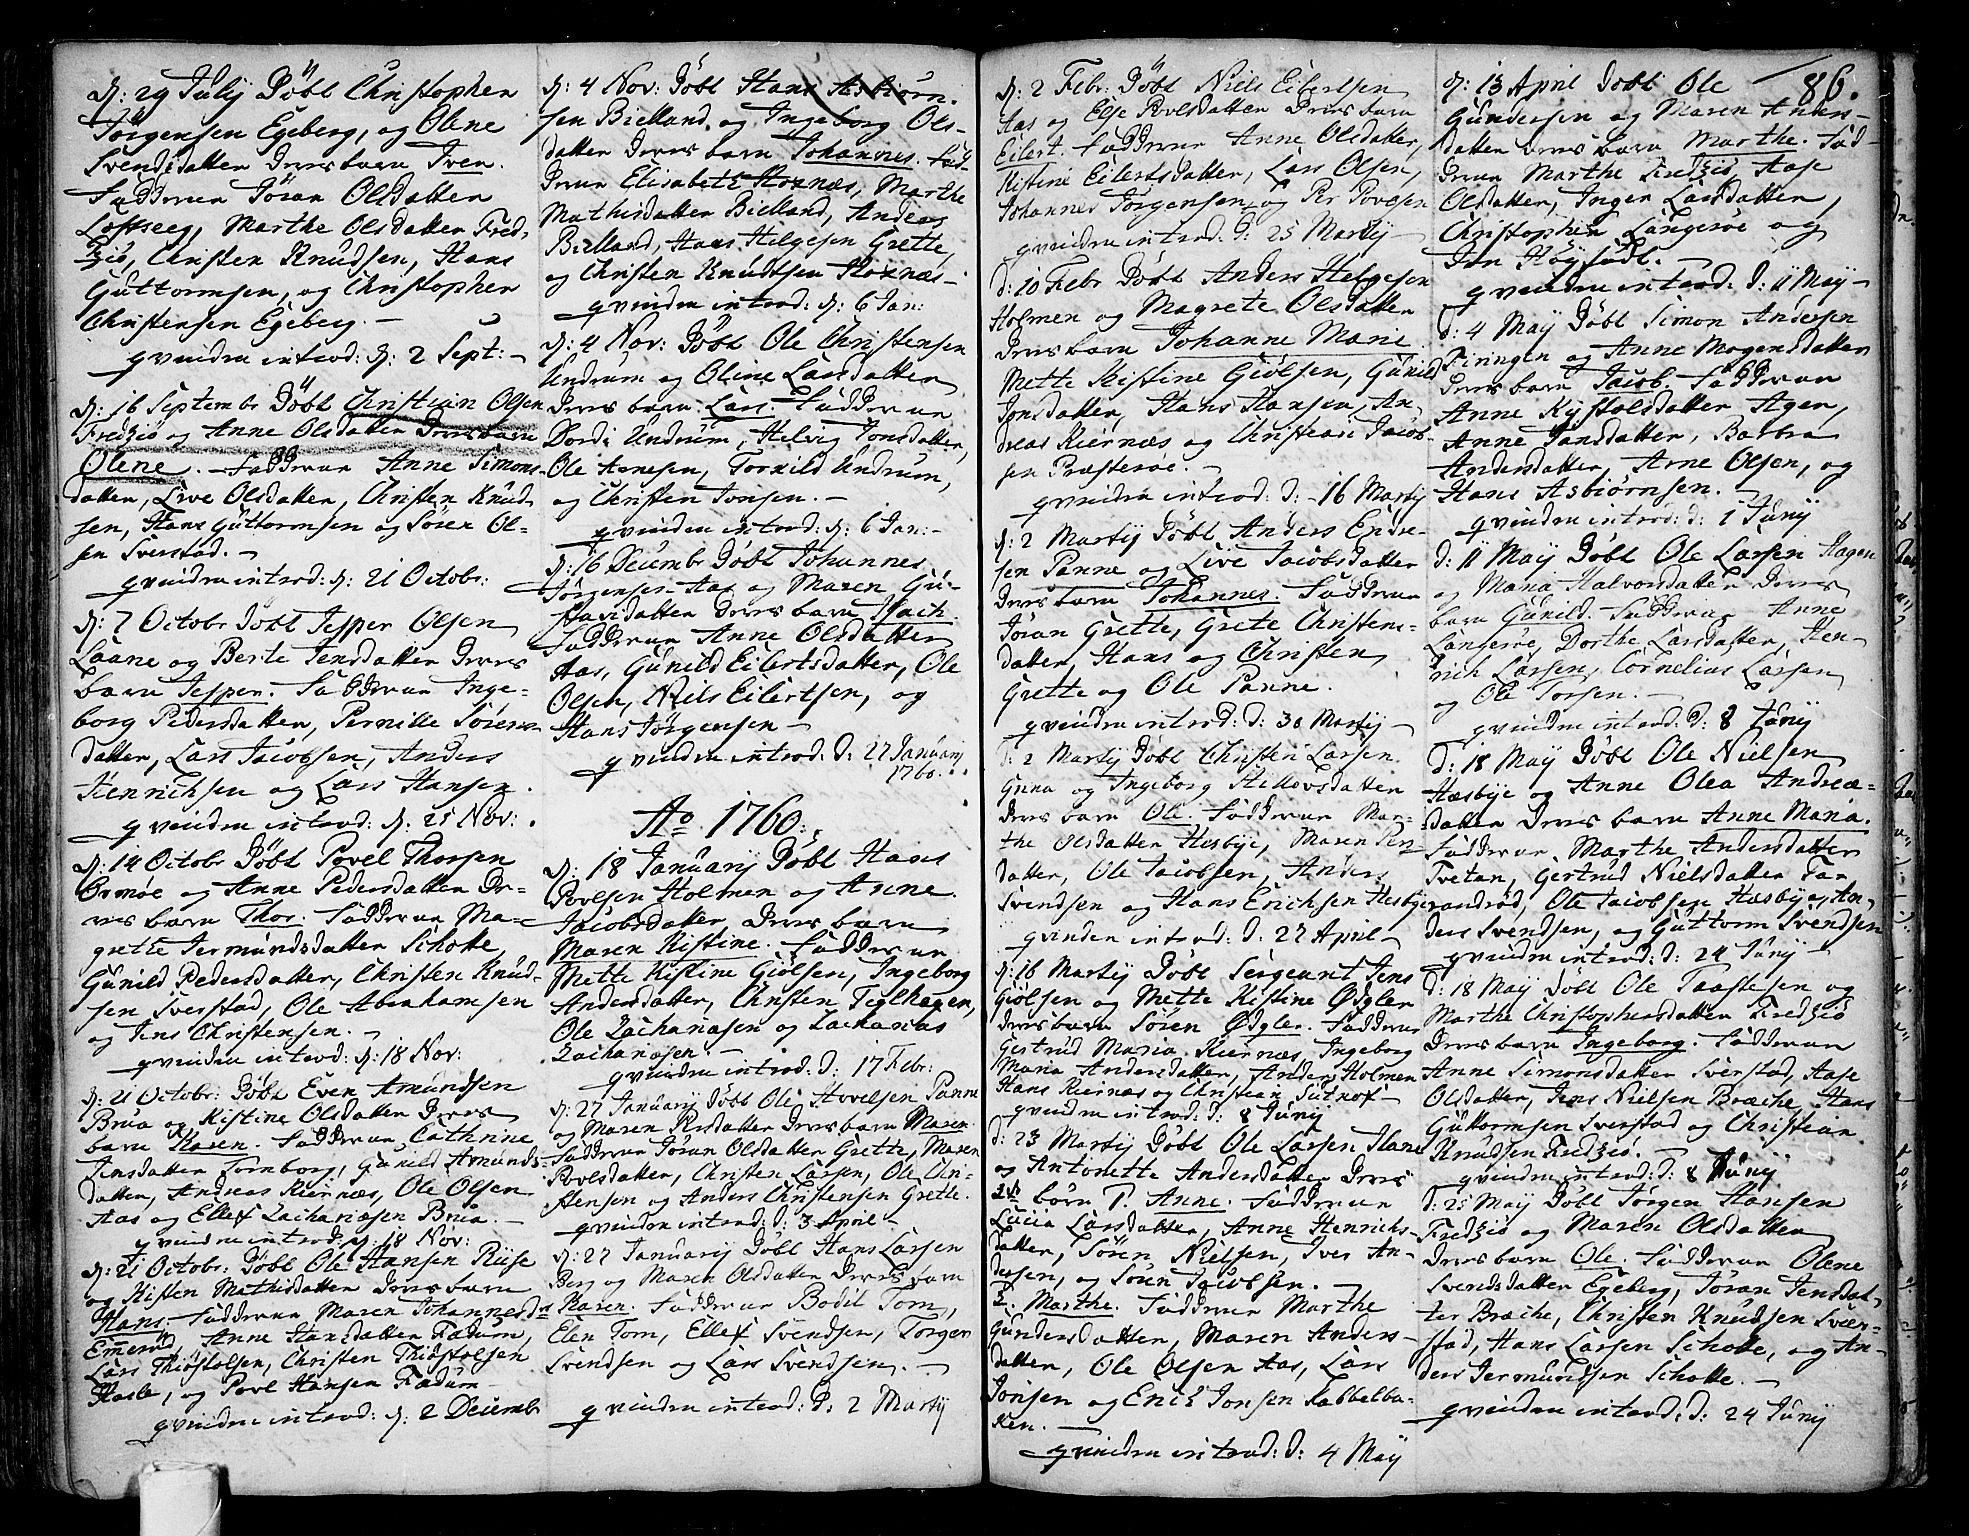 d: 29 Julij Döbt Christopher
Jörgensen Egeberg, og Olene
Svendsdatter Deres barn Iver.
Fadderne Jöran Olsdatter
Löfseeg, Marthe Olsdatter Fred-
ziö, Christen Knudsen, Hans
Guttormsen, og Christopher
Christensen Egeberg. –
qvinden introd: d: 2 Sept: –
d: 16 Septembr Döbt Christian Olsen
Fredziö og Anne Olsdatter Deres barn
Olene. – Fadderne Anne Simons-
datter, Live Olsdatter, Christen Knud-
sen, Hans Guttormsen og Sören Ol-
sen Sverstad. –
qvinden introd: d: 21 Octobr:
d: 7 Octobr Döbt Jesper Olsen
Laane og Berte Jensdatter Deres
barn Jesper. Fadderne Inge-
borg Pedersdatter, Pernille Sörens-
datter, Lars Jacobsen, Anders
Henrichsen og Lars Hansen.
qvinden introd: d: 25 Nov:
d: 14 Octobr Döbt Povel Thorsen
Ormöe og Anne Pedersdatter De-
res barn Thor. Fadderne Ma-
grette Jermundsdatter Schotte,
Gunild Pedersdatter, Christen Knud-
sen Sverstad, Ole Abrahamsen
og Jens Christensen. –
qvinden introd: d: 18 Nov:
d: 21 Octobr: Döbt Even Amundsen
Brua og Kistine Olsdatter Deres
barn Karen. Fadderne Cathrine
Jensdatter Tornborg, Gunild Amunds-
datter, Andreas Kiernæs, Ole Olsen
Aas og Ellef Zachariasen Brua. –
qvinden introd: d: 18 Nov:
d: 21 Octobr: Döbt Ole Hansen Riise
og Kisten Mathisdatter Deres barn
Hans. Fadderne Maren Johannesdr
Anne Hansdatter Fadum,
Lars Thiöstolsen, Christen Thiöstolsen
Hasle, og Povl Hansen Fadum –
qvinden introd: d: 2 Decembr
d: 4 Nov: Döbt Hans Asbiörn-
sen Bielland og Ingeborg Ols-
datter Deres barn Johannes. Fad-
derne Elisabeth Hoxnæs, Marthe
Mathisdatter Bielland, Anders
Bielland, Hans Helgesen Grette,
og Christen Knudtsen Hoxnæs –
qvinden introd: d: 6 Jan:
d: 4 Nov: Döbt Ole Christensen
Undrum og Olene Larsdatter
Deres barn Lars. Fadderne
Dordi Undrum, Helvig Jonsdatter,
Ole Arnesen, Torkild Undrum,
og Christen Jonsen. –
qvinden introd: d: 6 Jan: –
d: 16 Decembr Döbt Johannes
Jörgensen Aas og Maren Gu-
stavsdatter Deres barn Zach.
Fadderne Anne Olsdatter
Aas, Gunild Eilertsdatter, Ole
Olsen, Niels Eilertsen, og
Hans Jörgensen –
qvinden introd: d: 27 Januarij
1760.
Ao 1760.
d: 18 Januarij Döbt Hans
Povlsen Holmen og Anne
Jacobsdatter Deres barn
Maren Kistine. Fadderne
Mette Kistine Giölsen, Ingeborg
Andersdatter, Christen Teglhagen,
Ole Zachariasen og Zacharias
Zachariasen. –
qvinden introd: d: 17 Febr:
d: 27 Januarij Döbt Ole Hovelsen Panne
og Maren Persdatter Deres barn Maren
Fadderne Jöran Olsdatter Grette, Maren
Povlsdatter, Christen Larsen, Ole Chri-
stensen og Anders Christensen Grette.
qvinden introd: d: 3 April –
d: 27 Januarij Döbt Hans Larsen
Berg og Maren Olsdatter Deres barn
Karen. Fadderne Bodil Tom,
Elen Tom, Ellef Svendsen, Torger
Svendsen og Lars Svendsen. –
qvinden introd: d: 2 Martij
d: 2 Febr: Döbt Niels Eilertsen
Aas og Else Povlsdatter Deres barn
Eilert. Fadderne Anne Olsdatter,
Kistine Eilertsdatter, Lars Olsen,
Johannes Jörgensen og Per Povelsen
qvinden introd: d: 25 Martij –
d: 10 Febr Döbt Anders Helgesen
Holmen og Magrete Olsdatter
Deres barn Johanne Marie
Mette Kistine Giölsen, Gunild
Jonsdatter, Hans Hansen, An-
dreas Kiernæs og Christian Jacob-
sen Præsteröe. –
qvinden introd: d: 16 Martij
d: 2 Martij Döbt Anders Endre-
sen Panne og Live Jacobsdatter
Deres barn Johannes. Fadderne
Jöran Grette, Grete Christens-
datter, Hans og Christen
Grette og Ole Panne.
qvinden introd: d: 30 Martij –
d: 2 Martij Döbt Christen Larsen
Grina og Ingeborg Helkovsdatter
Deres barn Ole. Fadderne Mar-
the Olsdatter Hesbye, Maren Pers-
datter, Ole Jacobsen, Anders
Svendsen og Hans Erichsen Hesbye
qvinden introd: d: 27 April –
d: 16 Martij Döbt Sergeant Jens
Giölsen og Mette Kistine Ödgler
Deres barn Sören Ödgler. Fadderne
Gertrud Maria Kiernæs, Ingeborg
Maria Andersdatter, Anders Holmen
Hans Kiernæs og Christian –
qvinden introd: d: 8 Junij
d: 23 Martij Döbt Ole Larsen Hane
og Antonette Andersdatter Deres
2de börn 1. Anne. Fadderne
Lucia Larsdatter, Anne Henrichs-
datter, Sören Nielsen, Iver An-
dersen, og Sören Jacobsen. –
2. Marthe. Fadderne Marthe
Gundersdatter, Maren Anders-
datter, Ole Olsen Aas, Lars
Jonsen og Erich Jonsen Kabbelba-
ken. –
qvinden introd: d: 4 Maij
86.
d: 13 April Döbt Ole
Gundersen og Maren Anders-
datter Deres barn Marthe. Fad-
derne Marthe Fredziö, Aase
Olsdatter, Inger Larsdatter,
Christopher Langeröe og
Jan Höysædt. –
qvinden introd: d: 11 Maij –
d: 4 Maij Döbt Simon Andersen
Firingen og Anne Mogensdatter
Deres barn Jacob. Fadderne
Anne Kystolsdatter Agen,
Anne Jansdatter, Barbra
Andersdatter, Arne Olsen, og
Hans Asbiörnsen. –
qvinden introd: d: 1 Junij
d: 11 Maij Döbt Ole Larsen Hagen
og Maria Halvorsdatter Deres
barn Gunild. Fadderne Anne
Langeröe, Dorthe Larsdatter, Hen-
rich Larsen, Cornelius Larsen
og Ole Torsen. –
qvinden introd: d: 8 Junij
d: 18 Maij Döbt Ole Nielsen
Hæsbye og Anne Olea Andreæ-
datter Deres barn Anne Maria.
Fadderne Marthe Andersdatter
Tvetan, Gertrud Nielsdatter Fa-
randröd, Ole Jacobsen Hæsbye, An-
ders Svendsen, og Guttorm Svendsen
qvinden introd: d: 24 Junij –
d: 18 Maij Döbt Ole Taastesen og
Marthe Christophersdatter Fredziö
Deres barn Ingeborg. Fadderne
Anne Simonsdatter Sverstad, Aase
Olsdatter, Jens Nielsen Bræche, Hans
Guttormsen Sverstad og Christian
Knudsen Fredziö. –
qvinden introd: d: 8 Junij
d: 25 Maij Döbt Jörgen Hansen
Fredziö og Maren Olsdatter
Deres barn Ole. Fadderne Olene
Svendsdatter Egeberg, Jöran Jensdat-
ter Bræche, Christen Knudsen Svær-
stad, Hans Larsen Schotte, og An-
ders Jermundsen Schotte. –
qvinden introd: d: 24 Junij